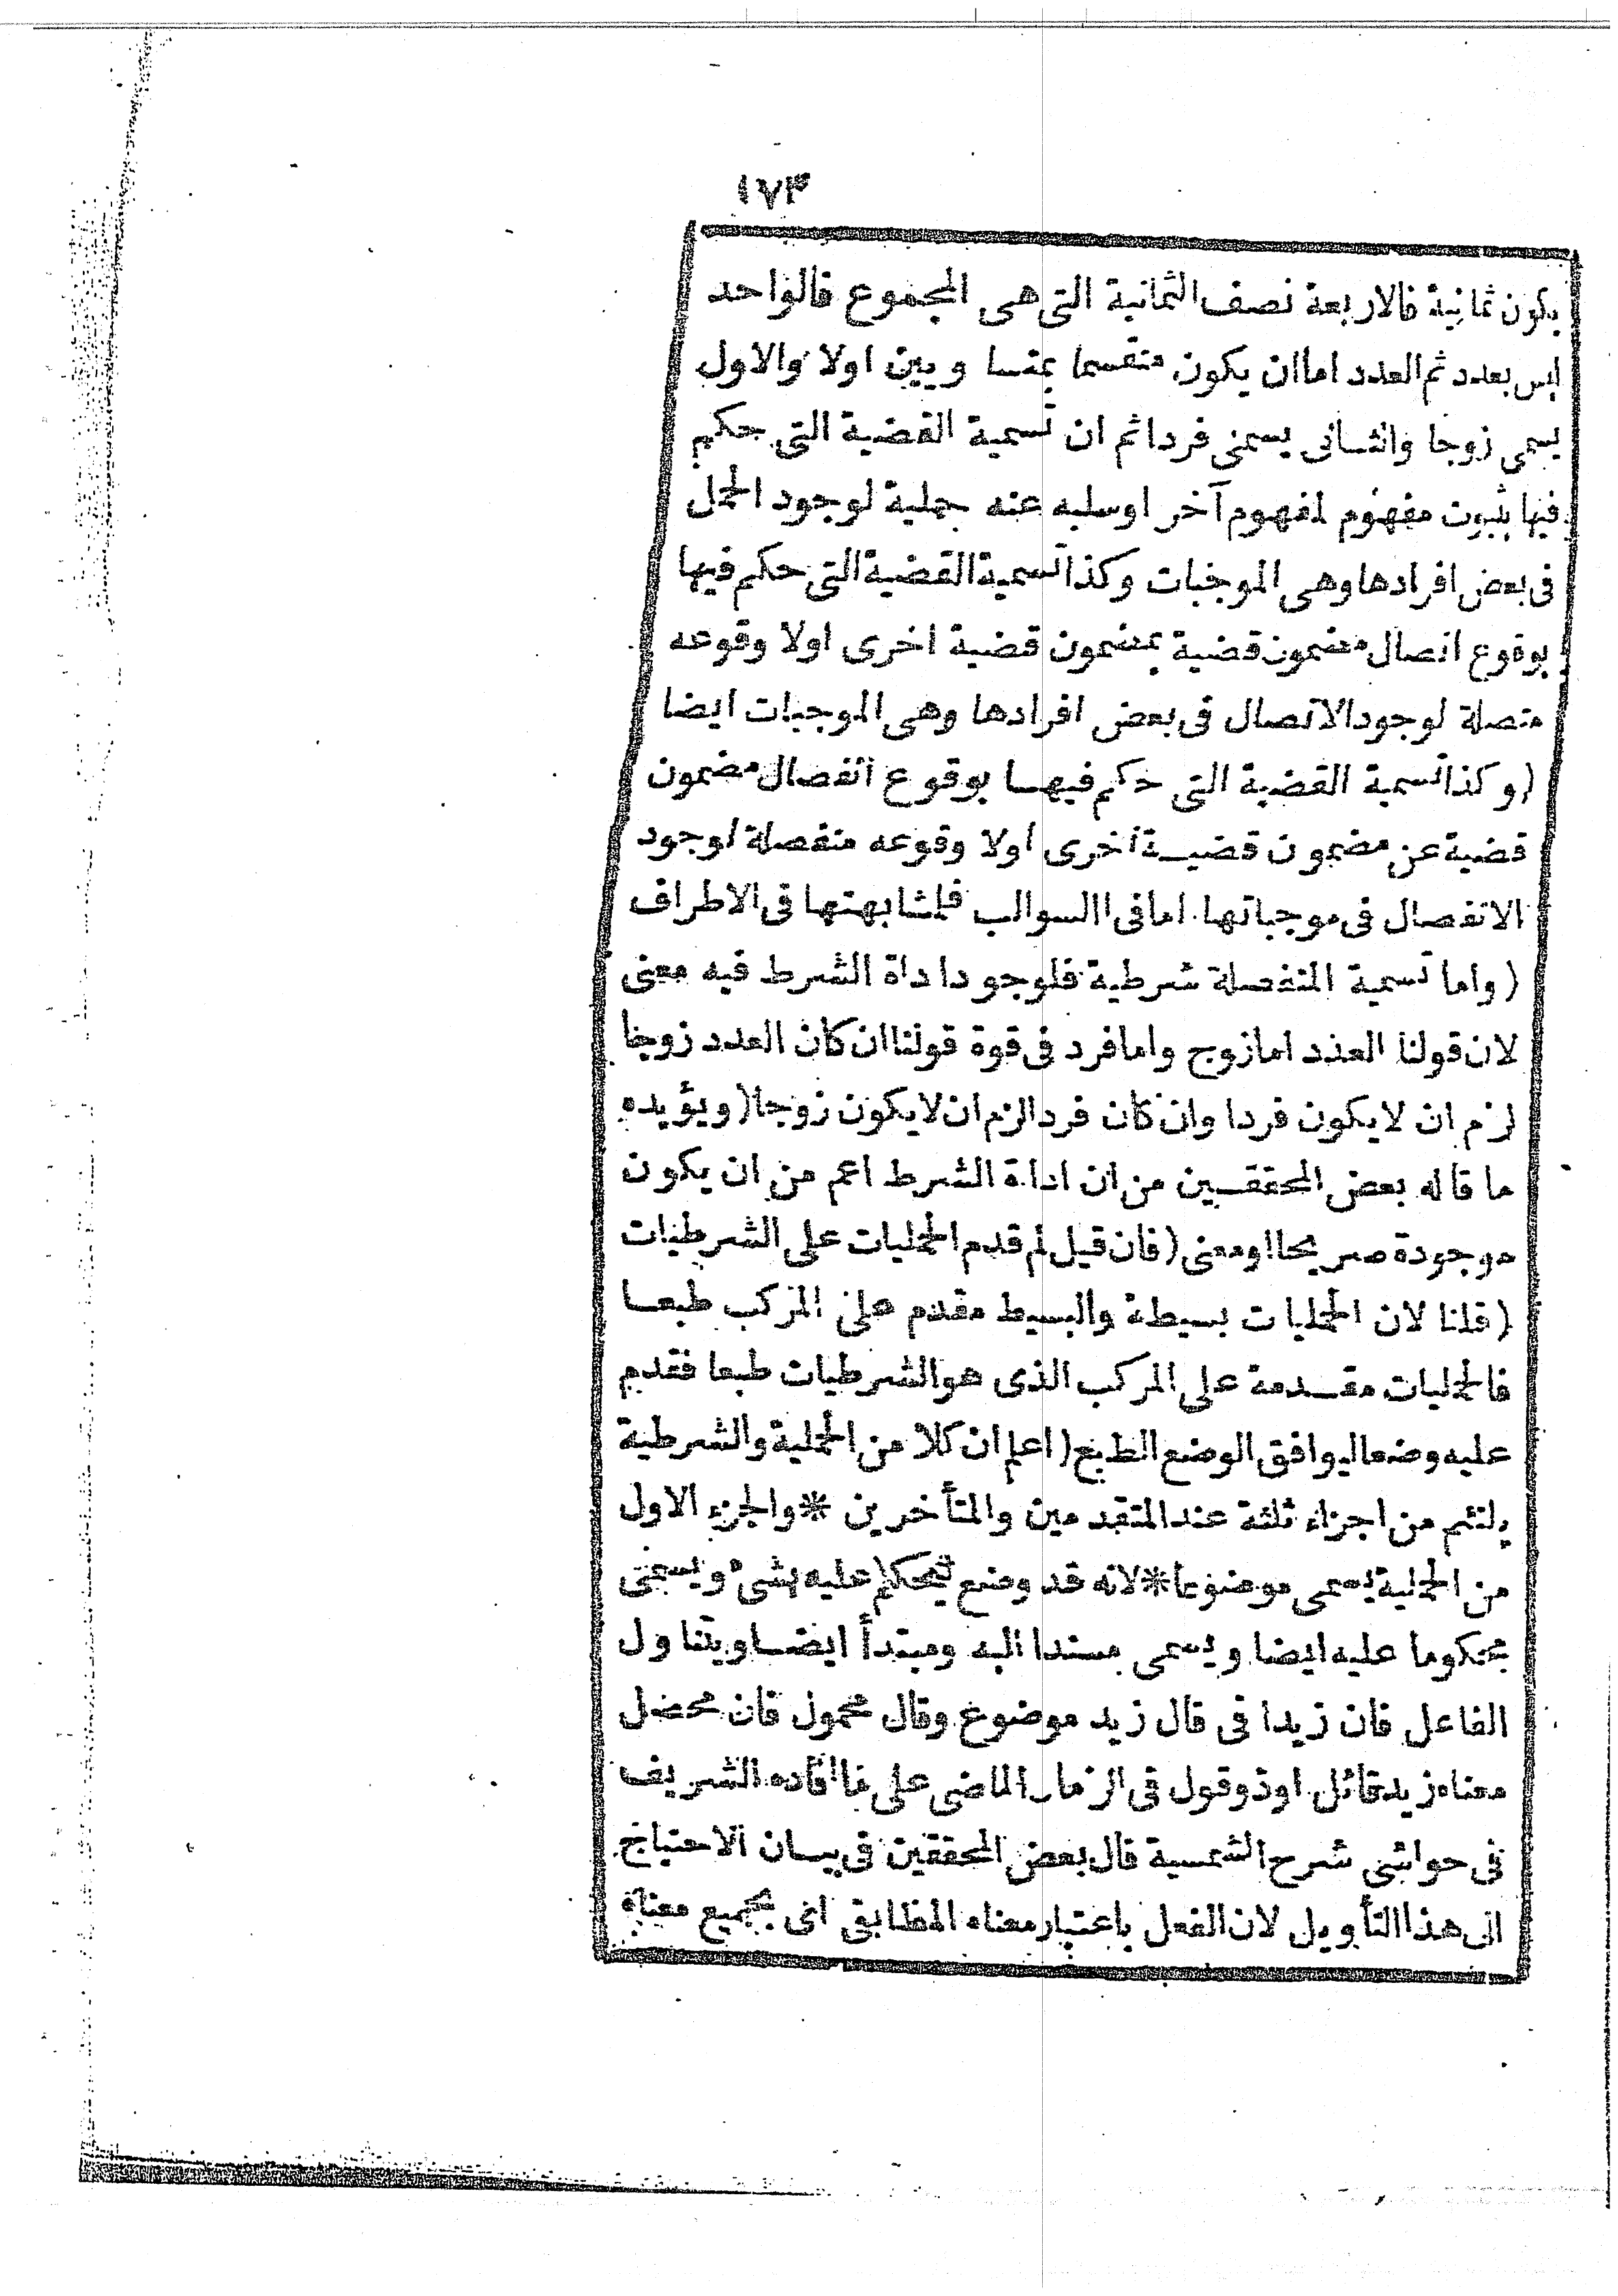 ١٧٣
يكون ثمانية فالاربعة نصف الثمانية التى هى المجموع فالواحد
ليس بعدد ثم العدد اما ان يكون منقسما بمتساويين اولا والاول
يسمى زوجا والثانى يسمى فردا ثم ان تسمية القضية التى حكم
فيها بثبوت مفهوم لمفهوم آخر او سلبه عنه حملية لوجود الحمل
فى بعض افرادها وهى الموجبات وكذا تسمية القضية التى حكم فيها
بوقوع اتصال مضمون قضية بمضمون قضية اخرى اولا وقوعه
متصلة لوجود الاتصال فى بعض افرادها وهى الموجبات ايضا
(وكذا تسمية القضية التى حكم فيها بوقوع انفصال مضمون
قضية عن مضمون قضية اخرى اولا وقوعه منفصلة لوجود
الانفصال فى موجباتها اما فى السوالب فلمشابهتها فى الاطراف
(واما تسمية المنفصلة شرطية فلوجود اداة الشرط فيه معنى
لان قولنا العدد اما زوج واما فرد فى قوة قولنا ان كان العدد زوجا
لزم ان لا يكون فردا وان كان فردا لزم ان لا يكون زوجا (ويؤيده
ما قاله بعض المحققين من ان اداة الشرط اعم من ان يكون
موجودة صريحا او معنى (فان قيل لم قدم الحمليات على الشرطيات
(قلنا لان الحمليات بسيطة والبسيط مقدم على المركب طبعا
فالحمليات مقدمة على المركب الذى هو الشرطيات طبعا فقدم
عليه وضعا ليوافق الوضع الطبع (اعلم ان كلا من الحملية والشرطية
يلتئم من اجزاء ثلثة عند المتقدمين والمتأخرين * والجزء الاول
من الحملية يسمى موضوعا * لانه قد وضع ليحكم عليه بشئ ويسمى
محكوما عليه ايضا ويسمى مسندا اليه ومبتدأ ايضا ويتناول
الفاعل فان زيدا فى قال زيد موضوع وقال محمول فان محصل
معناه زيد قائل او ذو قول فى الزمان الماضى على ما افاده الشريف
فى حواشى شرح الشمسية قال بعض المحققين فى بيان الاحتياج
الى هذا التأويل لان الفعل باعتبار معناه المطابقى اى بجميع معناه